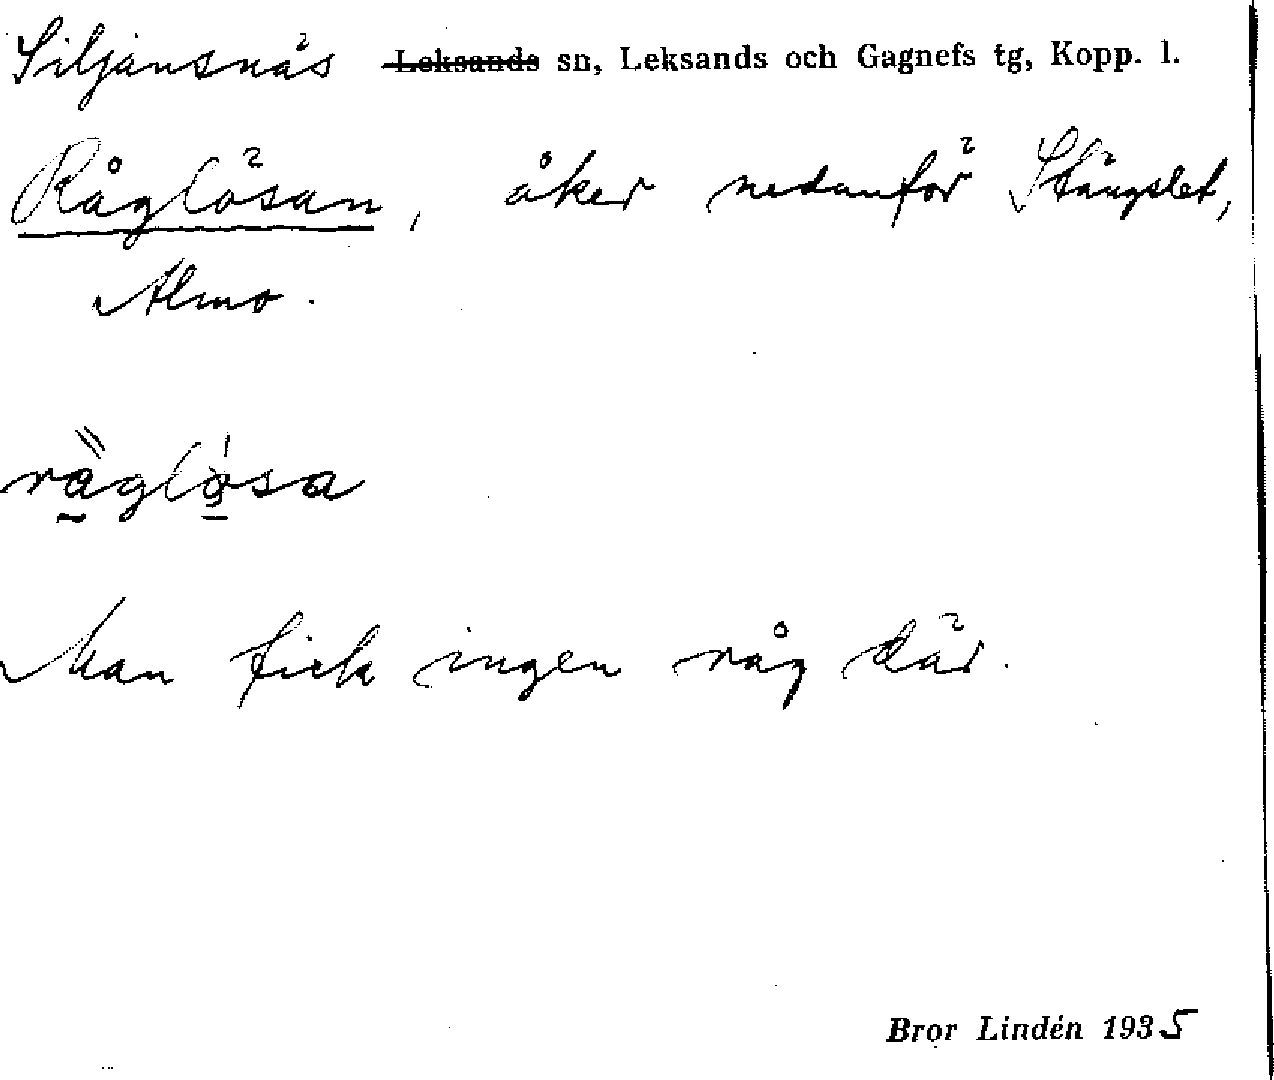 Siljansnäs ~~Leksands~~ sn, Leksands och Gagnefs tg, Kopp. l.
Råglösan, åker nedanför Stängslet,
Almo.
råglòsa
Man fick ingen råg där.
Bror Lindén 1935